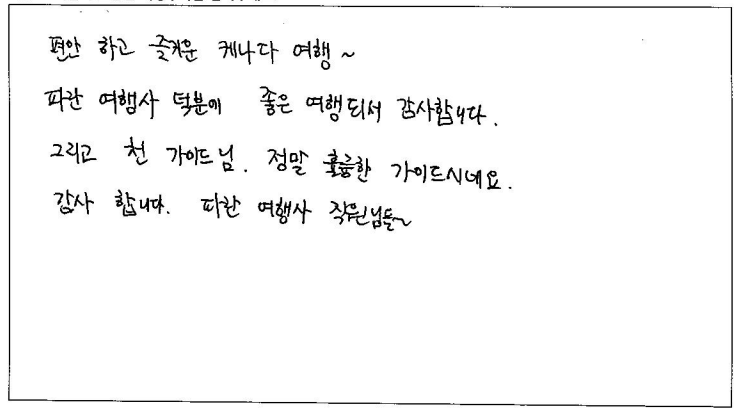 편안 하고 즐거운 케나다 여행~
파란 여행사 덕분에 좋은 여행되서 감사합니다.
그리고 천 가이드님. 정말 훌륭한 가이드시네요.
감사 합니다. 파란 여행사 직원님들~